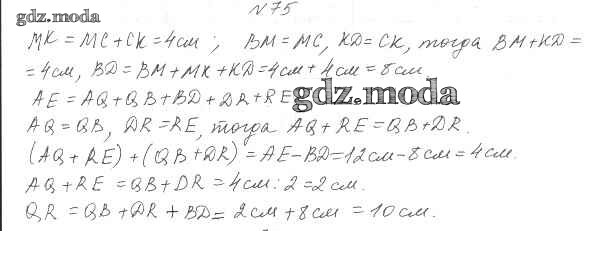 gdz.moda
№75
MK = MC + CK = 4см; BM = MC, KD = CK, тогда BM + KD =
= 4см, BD = BM + MK + KD = 4см + 4см = 8см.
AE = AQ + QB + BD + DR + RE
gdz.moda
AQ = QB, DR = RE, тогда AQ + RE = QB + DR.
(AQ + RE) + (QB + DR) = AE - BD = 12см - 8см = 4см.
AQ + RE = QB + DR = 4см : 2 = 2см.
QR = QB + DR + BD = 2см + 8см = 10см.